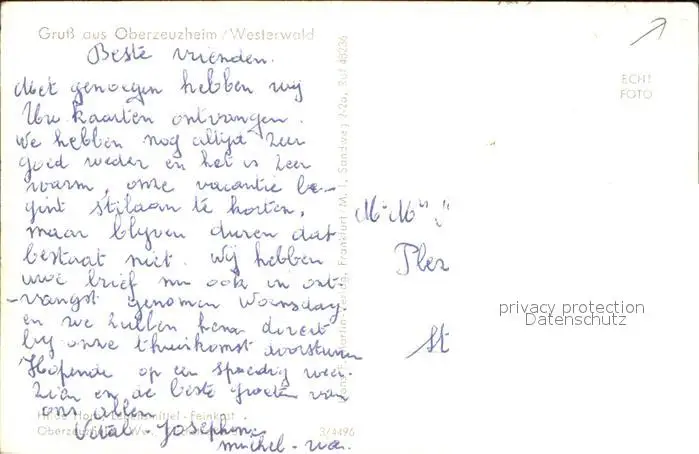 Gruß aus Oberzeuzheim / Westerwald
Beste vrienden.
Met genoegen hebben wij
Uw kaarten ontvangen.
We hebben nog altijd zeer
goed weder en het is zeer
warm, onze vacantie be-
gint stilaan te korten,
maar blijven duren dat
bestaat niet. Wij hebben
uwe brief nu ook in ont-
-vangst genomen Woensdag
en we zullen hem direct
bij onze thuiskomst doorsturen
Hopende op een spoedig weer-
zien en de beste groeten van
ons allen
Vital - Josephine
michel -
3/4496
Frankfurt M. 1, Sandweg 7-2a, Ruf 48236
ECHT
FOTO
privacy protection
Datenschutz